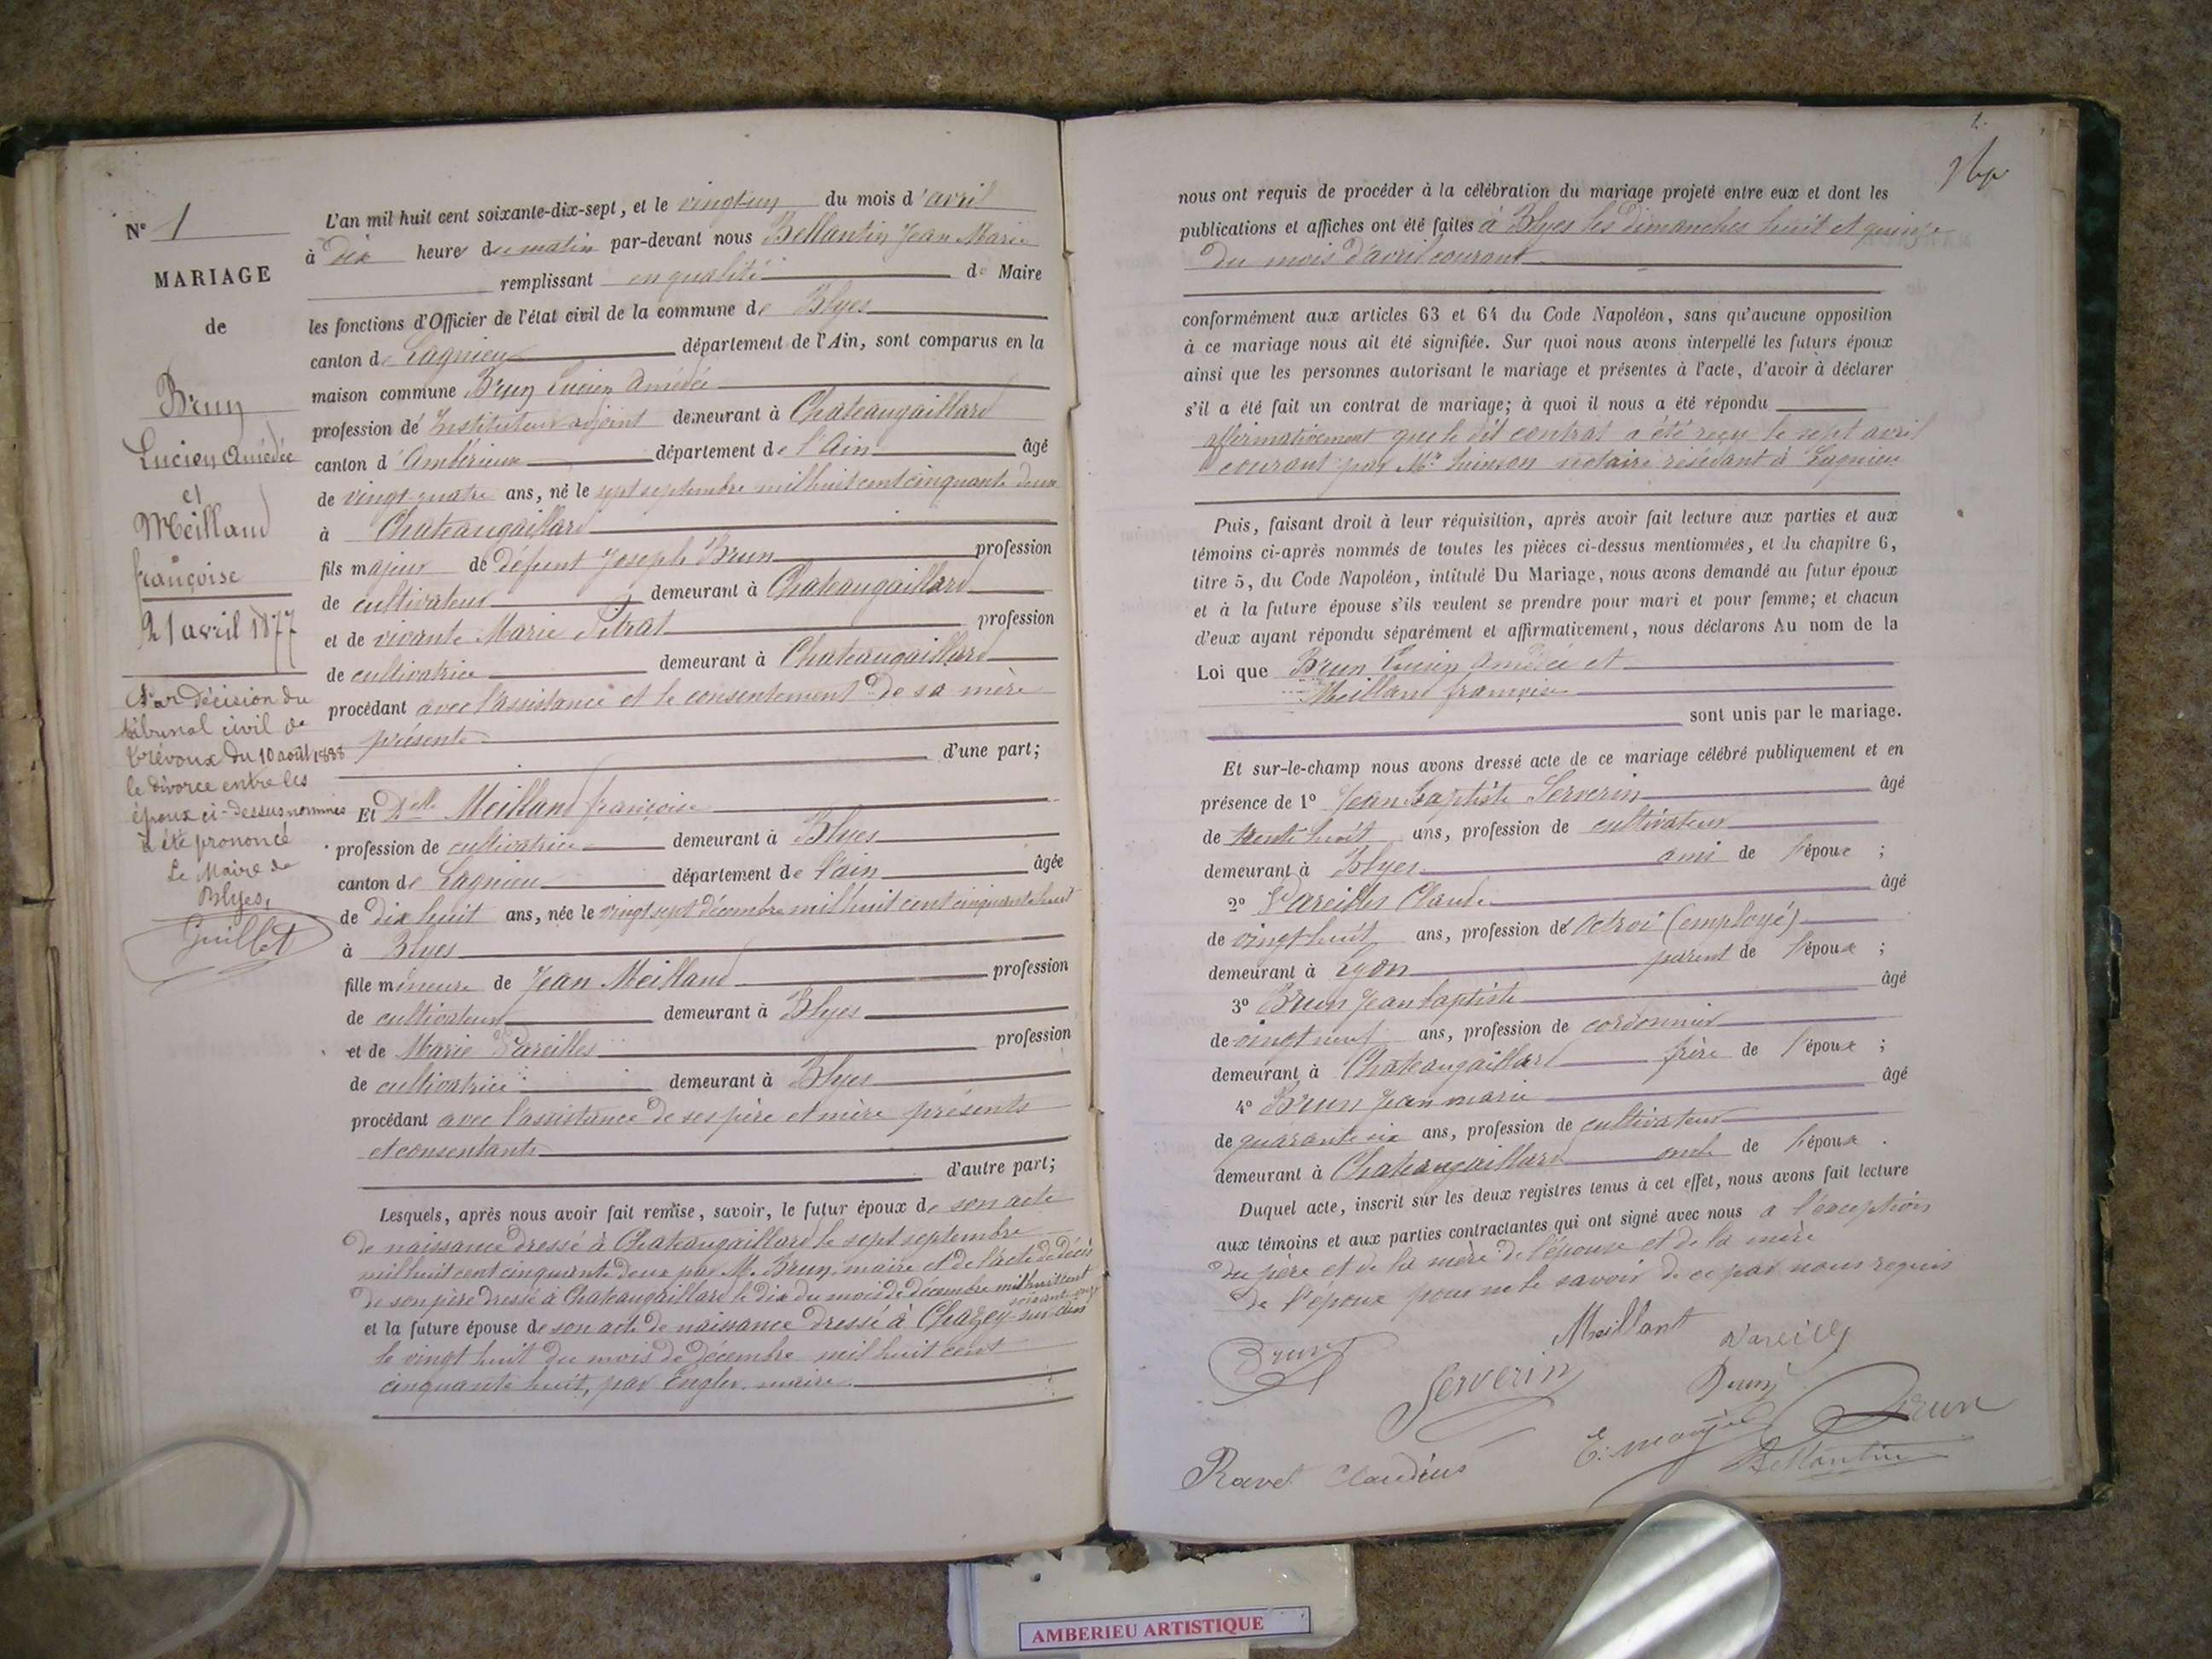 N° 1
MARIAGE
de
Brun
Lucien Amédée
et
Meilland
françoise
21 avril 1877
Par décision du
tribunal civil de
Trévoux du 10 août 1888
le divorce entre les
époux ci-dessus nommés
a été prononcé
Le Maire de
Blyes,
Guillet
L'an mil huit cent soixante-dix-sept, et le vingt-un du mois d'avril
à dix heure du matin par-devant nous Bellantin Jean Marie
remplissant en qualité de Maire
les fonctions d'Officier de l'état civil de la commune de Blyes
canton de Lagnieu département de l'Ain, sont comparus en la
maison commune Brun Lucien Amédée
profession de Instituteur adjoint demeurant à Chateaugaillard
canton d'Ambérieux département de l'Ain âgé
de vingt-quatre ans, né le sept septembre mil huit cent cinquante deux
à Chateaugaillard
fils majeur de défunt Joseph Brun profession
de cultivateur demeurant à Chateaugaillard
et de vivante Marie Pétrat profession
de cultivatrice demeurant à Chateaugaillard
procédant avec l'assistance et le consentement de sa mère
présente
d'une part;
Et Delle Meilland françoise
profession de cultivatrice demeurant à Blyes
canton de Lagnieu département de l'ain âgée
de dix huit ans, née le vingt sept décembre mil huit cent cinquante huit
à Blyes
fille mineure de Jean Meilland profession
de cultivateur demeurant à Blyes
et de Marie Vareilles profession
de cultivatrice demeurant à Blyes
procédant avec l'assistance de ses père et mère présents
et consentants
d'autre part;
Lesquels, après nous avoir fait remise, savoir, le futur époux de son acte
de naissance dressé à Chateaugaillard le sept septembre
mil huit cent cinquante deux par M. Brun, maire et de l'acte de décès
de son père dressé à Chateaugaillard le dix du mois de décembre mil huit cent
soixante
et la future épouse de son acte de naissance dressé à Chazey-sur-Ain
le vingt huit du mois de décembre mil huit cent
cinquante huit, par Engler, maire
1.
nous ont requis de procéder à la célébration du mariage projeté entre eux et dont les
publications et affiches ont été faites à Blyes les dimanches huit et quinze
du mois d'avril courant
conformément aux articles 63 et 64 du Code Napoléon, sans qu'aucune opposition
à ce mariage nous ait été signifiée. Sur quoi nous avons interpellé les futurs époux
ainsi que les personnes autorisant le mariage et présentes à l'acte, d'avoir à déclarer
s'il a été fait un contrat de mariage; à quoi il nous a été répondu
affirmativement que le dit contrat a été reçu le sept avril
courant par Me notaire résidant à Lagnieu
Puis, faisant droit à leur réquisition, après avoir fait lecture aux parties et aux
témoins ci-après nommés de toutes les pièces ci-dessus mentionnées, et du chapitre 6,
titre 5, du Code Napoléon, intitulé Du Mariage, nous avons demandé au futur époux
et à la future épouse s'ils veulent se prendre pour mari et pour femme; et chacun
d'eux ayant répondu séparément et affirmativement, nous déclarons Au nom de la
Loi que Brun Lucien Amédée et
Meilland françoise
sont unis par le mariage.
Et sur-le-champ nous avons dressé acte de ce mariage célébré publiquement et en
présence de 1° Jean baptiste Serverin âgé
de trente huit ans, profession de cultivateur
demeurant à Blyes ami de l'époux ;
2° Vareilles Claude âgé
de vingt huit ans, profession de octroi (employé)
demeurant à Lyon parent de l'époux ;
3° Brun Jean baptiste âgé
de vingt neuf ans, profession de cordonnier
demeurant à Chateaugaillard frère de l'époux ;
4° Brun Jean marie âgé
de quarante six ans, profession de cultivateur
demeurant à Chateaugaillard oncle de l'époux .
Duquel acte, inscrit sur les deux registres tenus à cet effet, nous avons fait lecture
aux témoins et aux parties contractantes qui ont signé avec nous a l'exception
du père et de la mère de l'épouse et de la mère
de l'époux pour ne le savoir de ce par nous requis
Brun
Meillant
Vareilles
Serverin
Brun
Brun
Ravet Claudius
Bellantin
AMBERIEU ARTISTIQUE